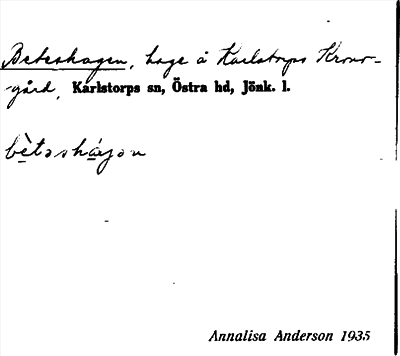 Beteshagen, hage å Karlstorps Krono-
gård, Karlstorps sn, Östra hd, Jönk. l.
bètəshágən
Annalisa Anderson 1935